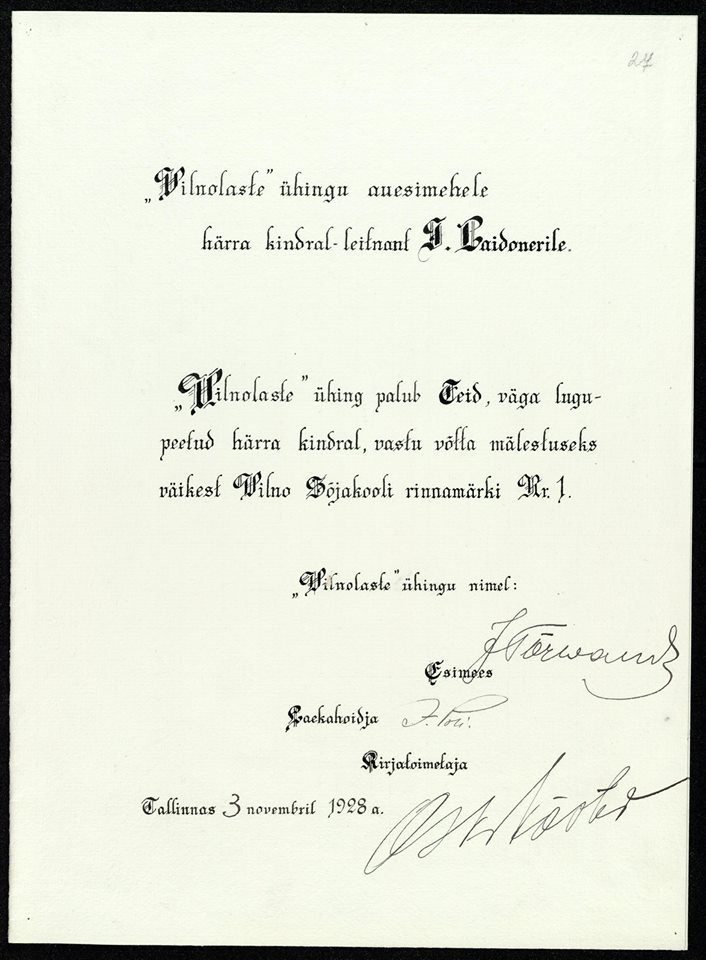 27
„Vilnolaste" ühingu auesimehele
härra kindral-leitnant J. Laidonerile.
„Vilnolaste" ühing palub Teid, väga lugu-
peetud härra kindral, vastu võtta mälestuseks
väikest Vilno Sõjakooli rinnamärki Nr. 1.
„Vilnolaste" ühingu nimel:
J Tõrwand
Esimees
Laekahoidja
Kirjatoimetaja
Tallinnas 3 novembril 1928 a.